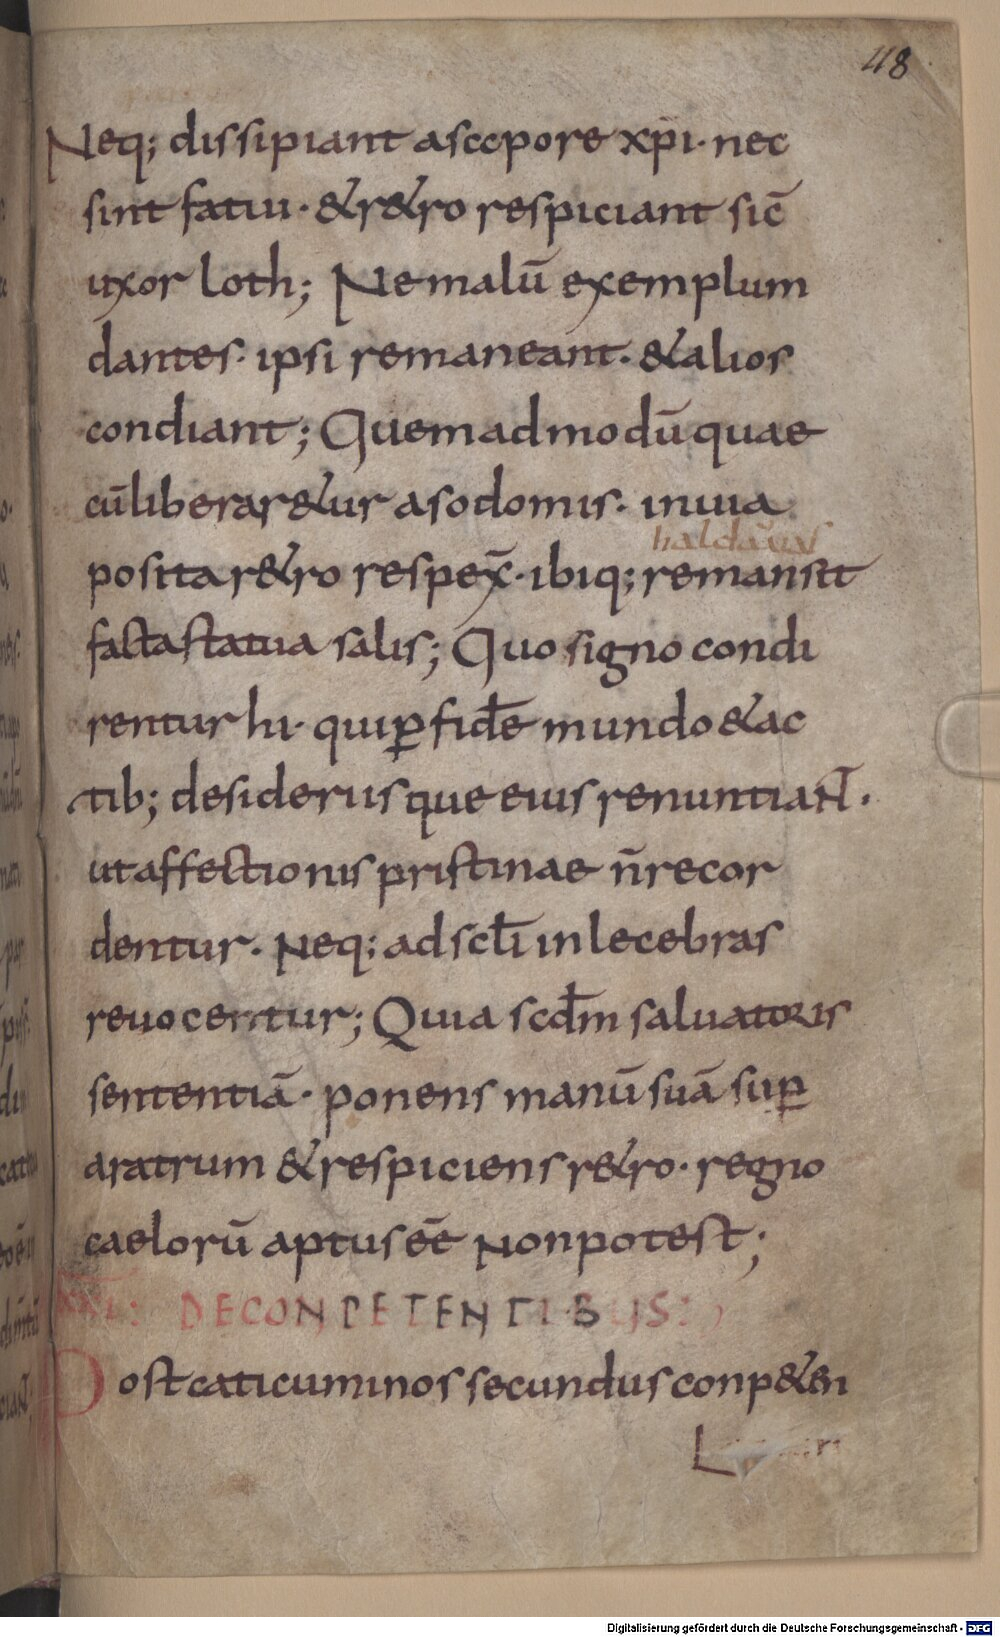 48
Neq; dissipiant asccpore xp̄i· nec
sint fatui· &r&ro respiciant sic̄
uxor loth; Nemalū exemplum
dantes· ipsi remaneant· &alios
condiant; Quemadmodū quae
cūliberar&ur asodomis· inuia
haldauas
posita r&ro respex̄· ibiq; remansit
facta statua salis; Quo signo condi
rentur hi· qui ꝑ fidē mundo &ac
tib; desideriisque eius renuntiant̄·
utaffectionis pristinae n̄recor
dentur· Neq; adscłi inlecebras
reuocentur; Quia scdm̄ saluatoris
sententiā· ponens manū suā suꝑ
aratrum &respiciens r&ro· regno
caelorū aptus eē Nonpotest;
DECONPETENTIBUS:
Post caticuminos secundus conp&en